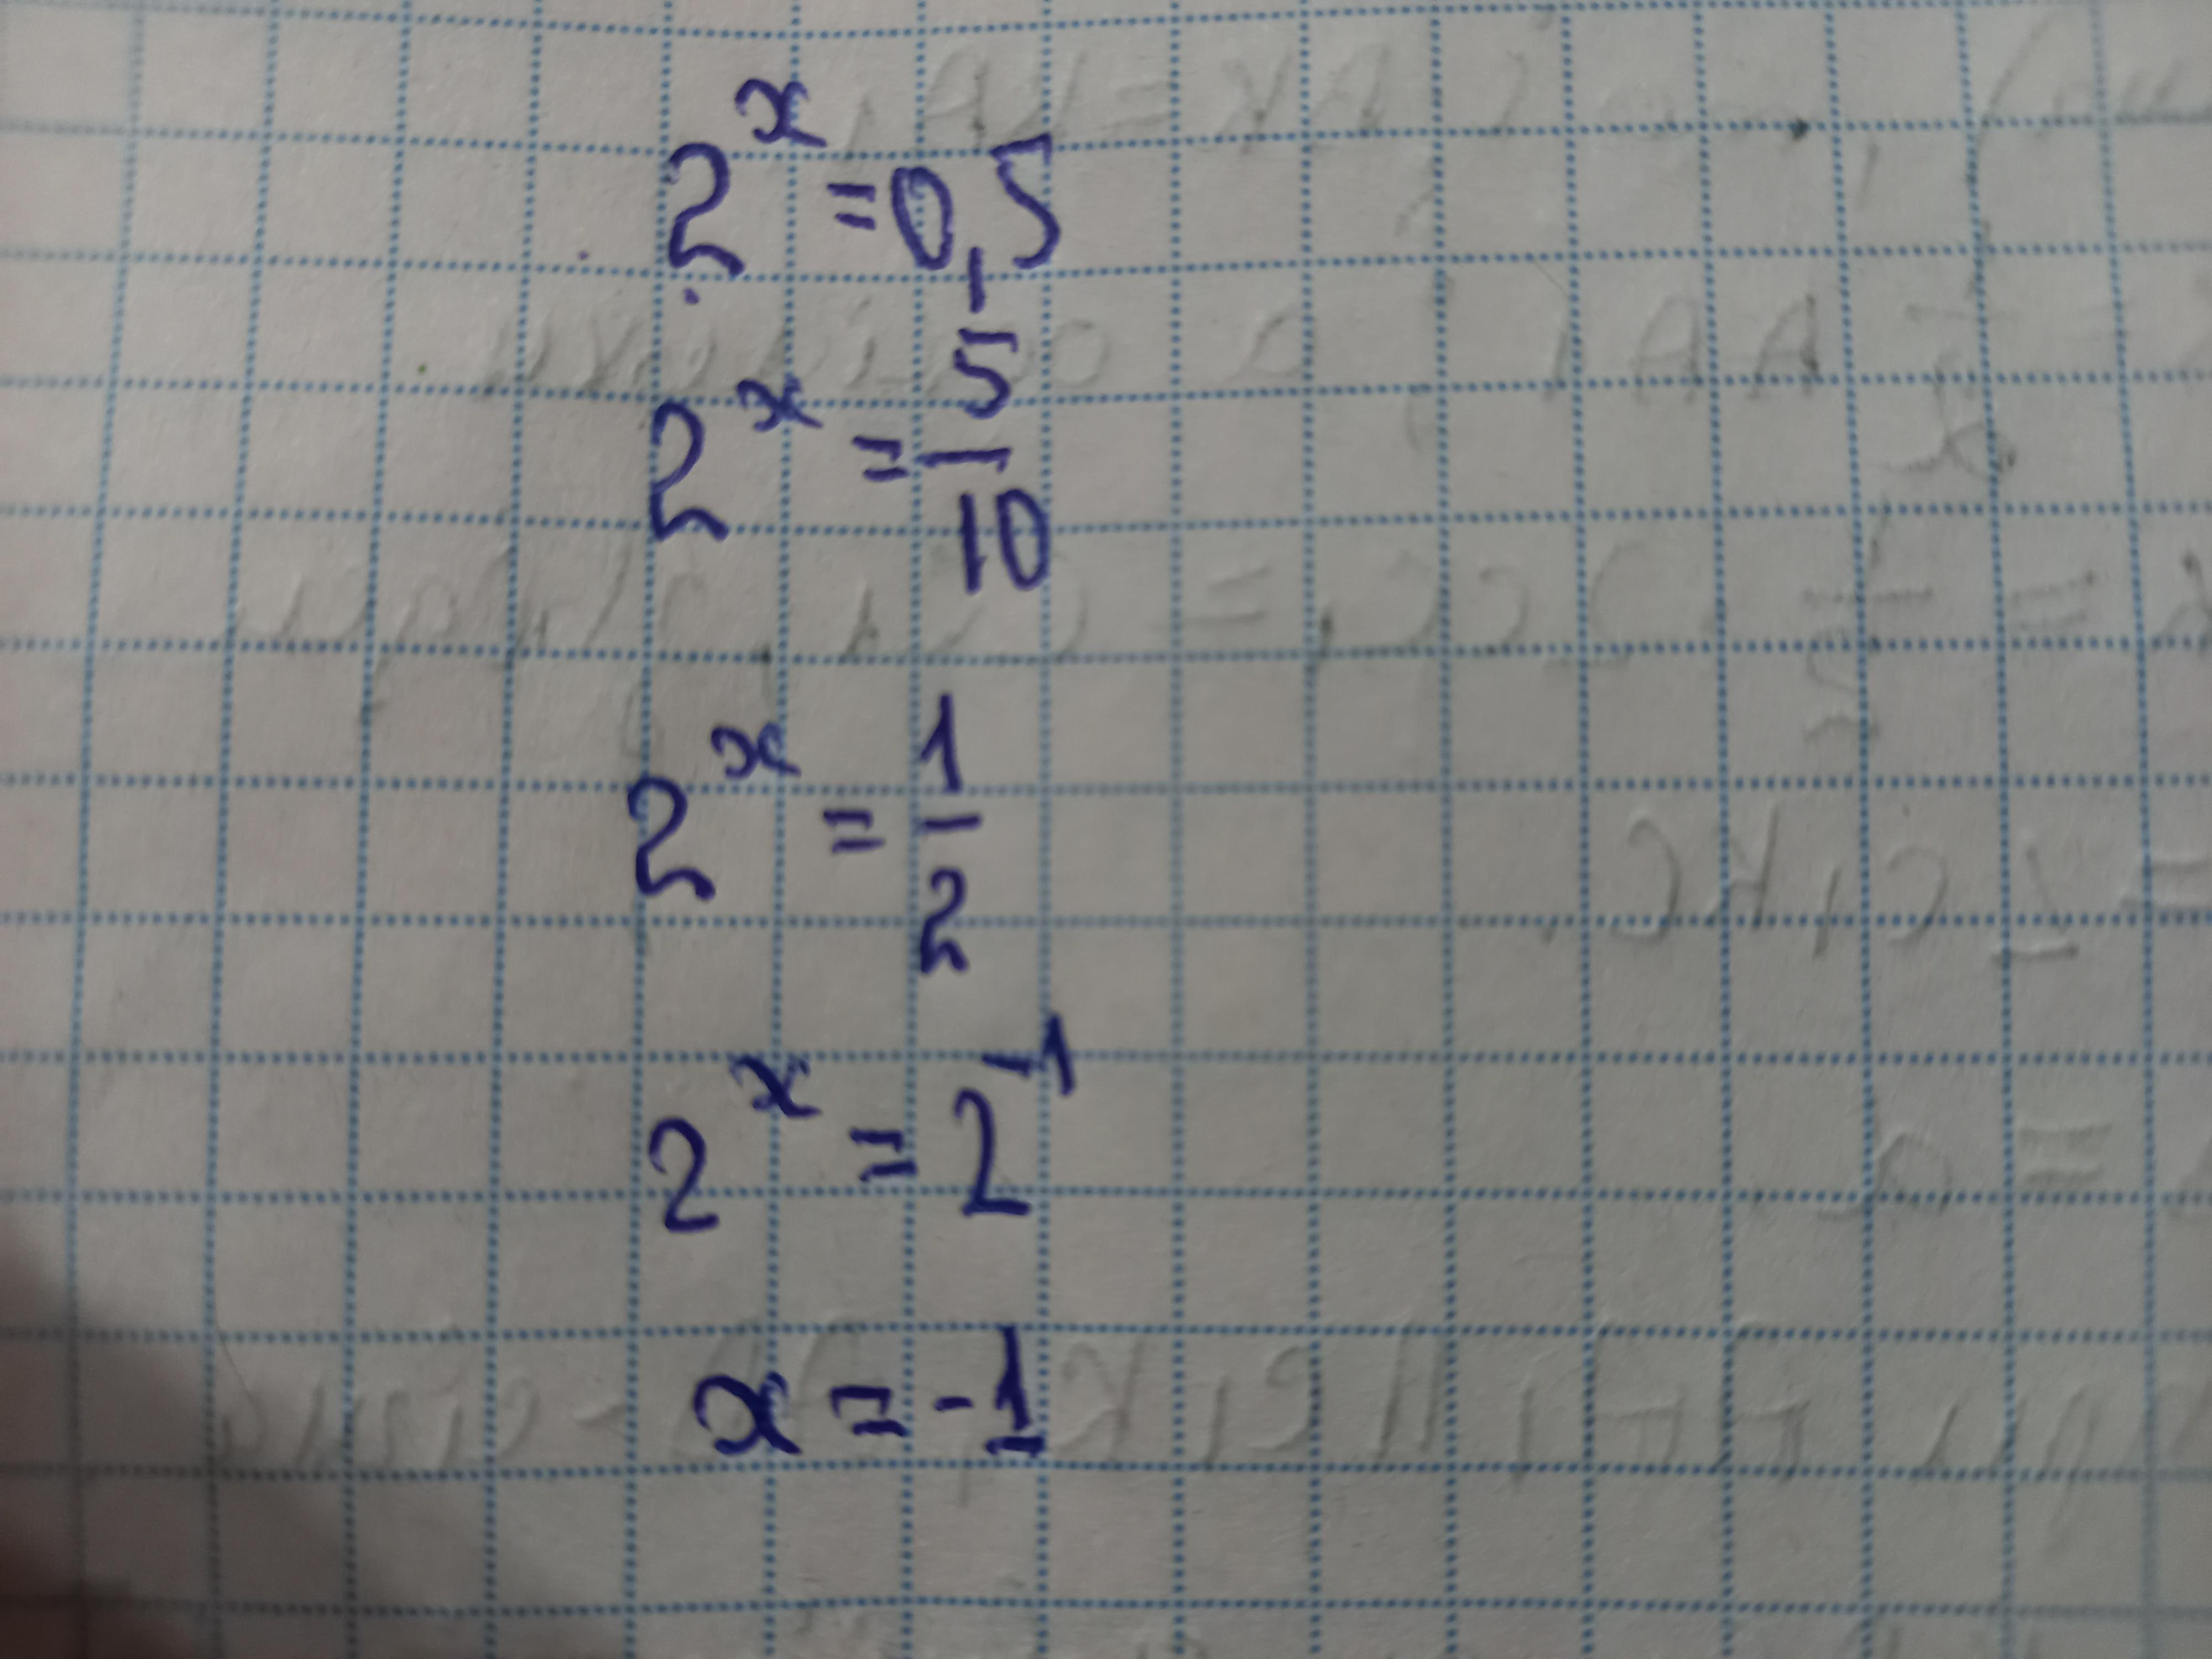 2^x = 0,5
2^x = 5/10
2^x = 1/2
2^x = 2^-1
x = -1